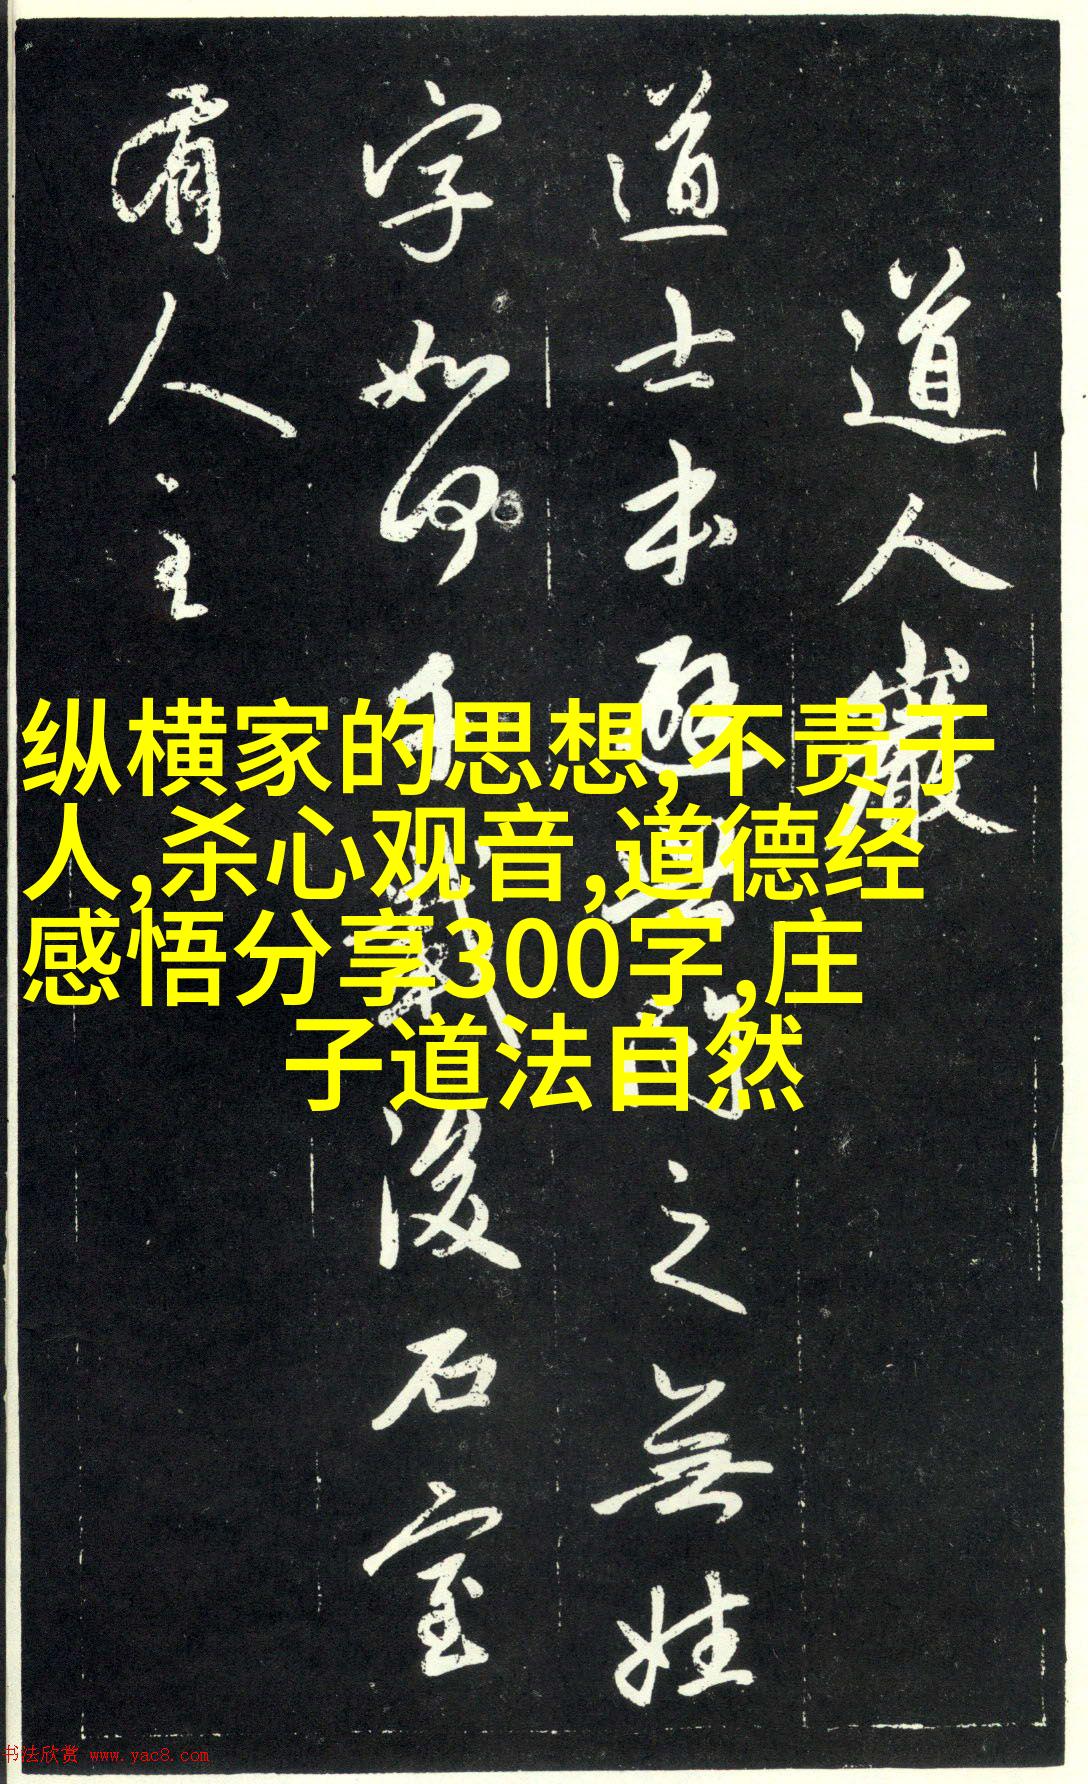 道人巖
道士本避之無姓
字如何千載後石室
有人主
纵横家的思想,不责于
人,杀心观音,道德经
感悟分享300字,庄
子道法自然
书法欣赏 www.yac8.com